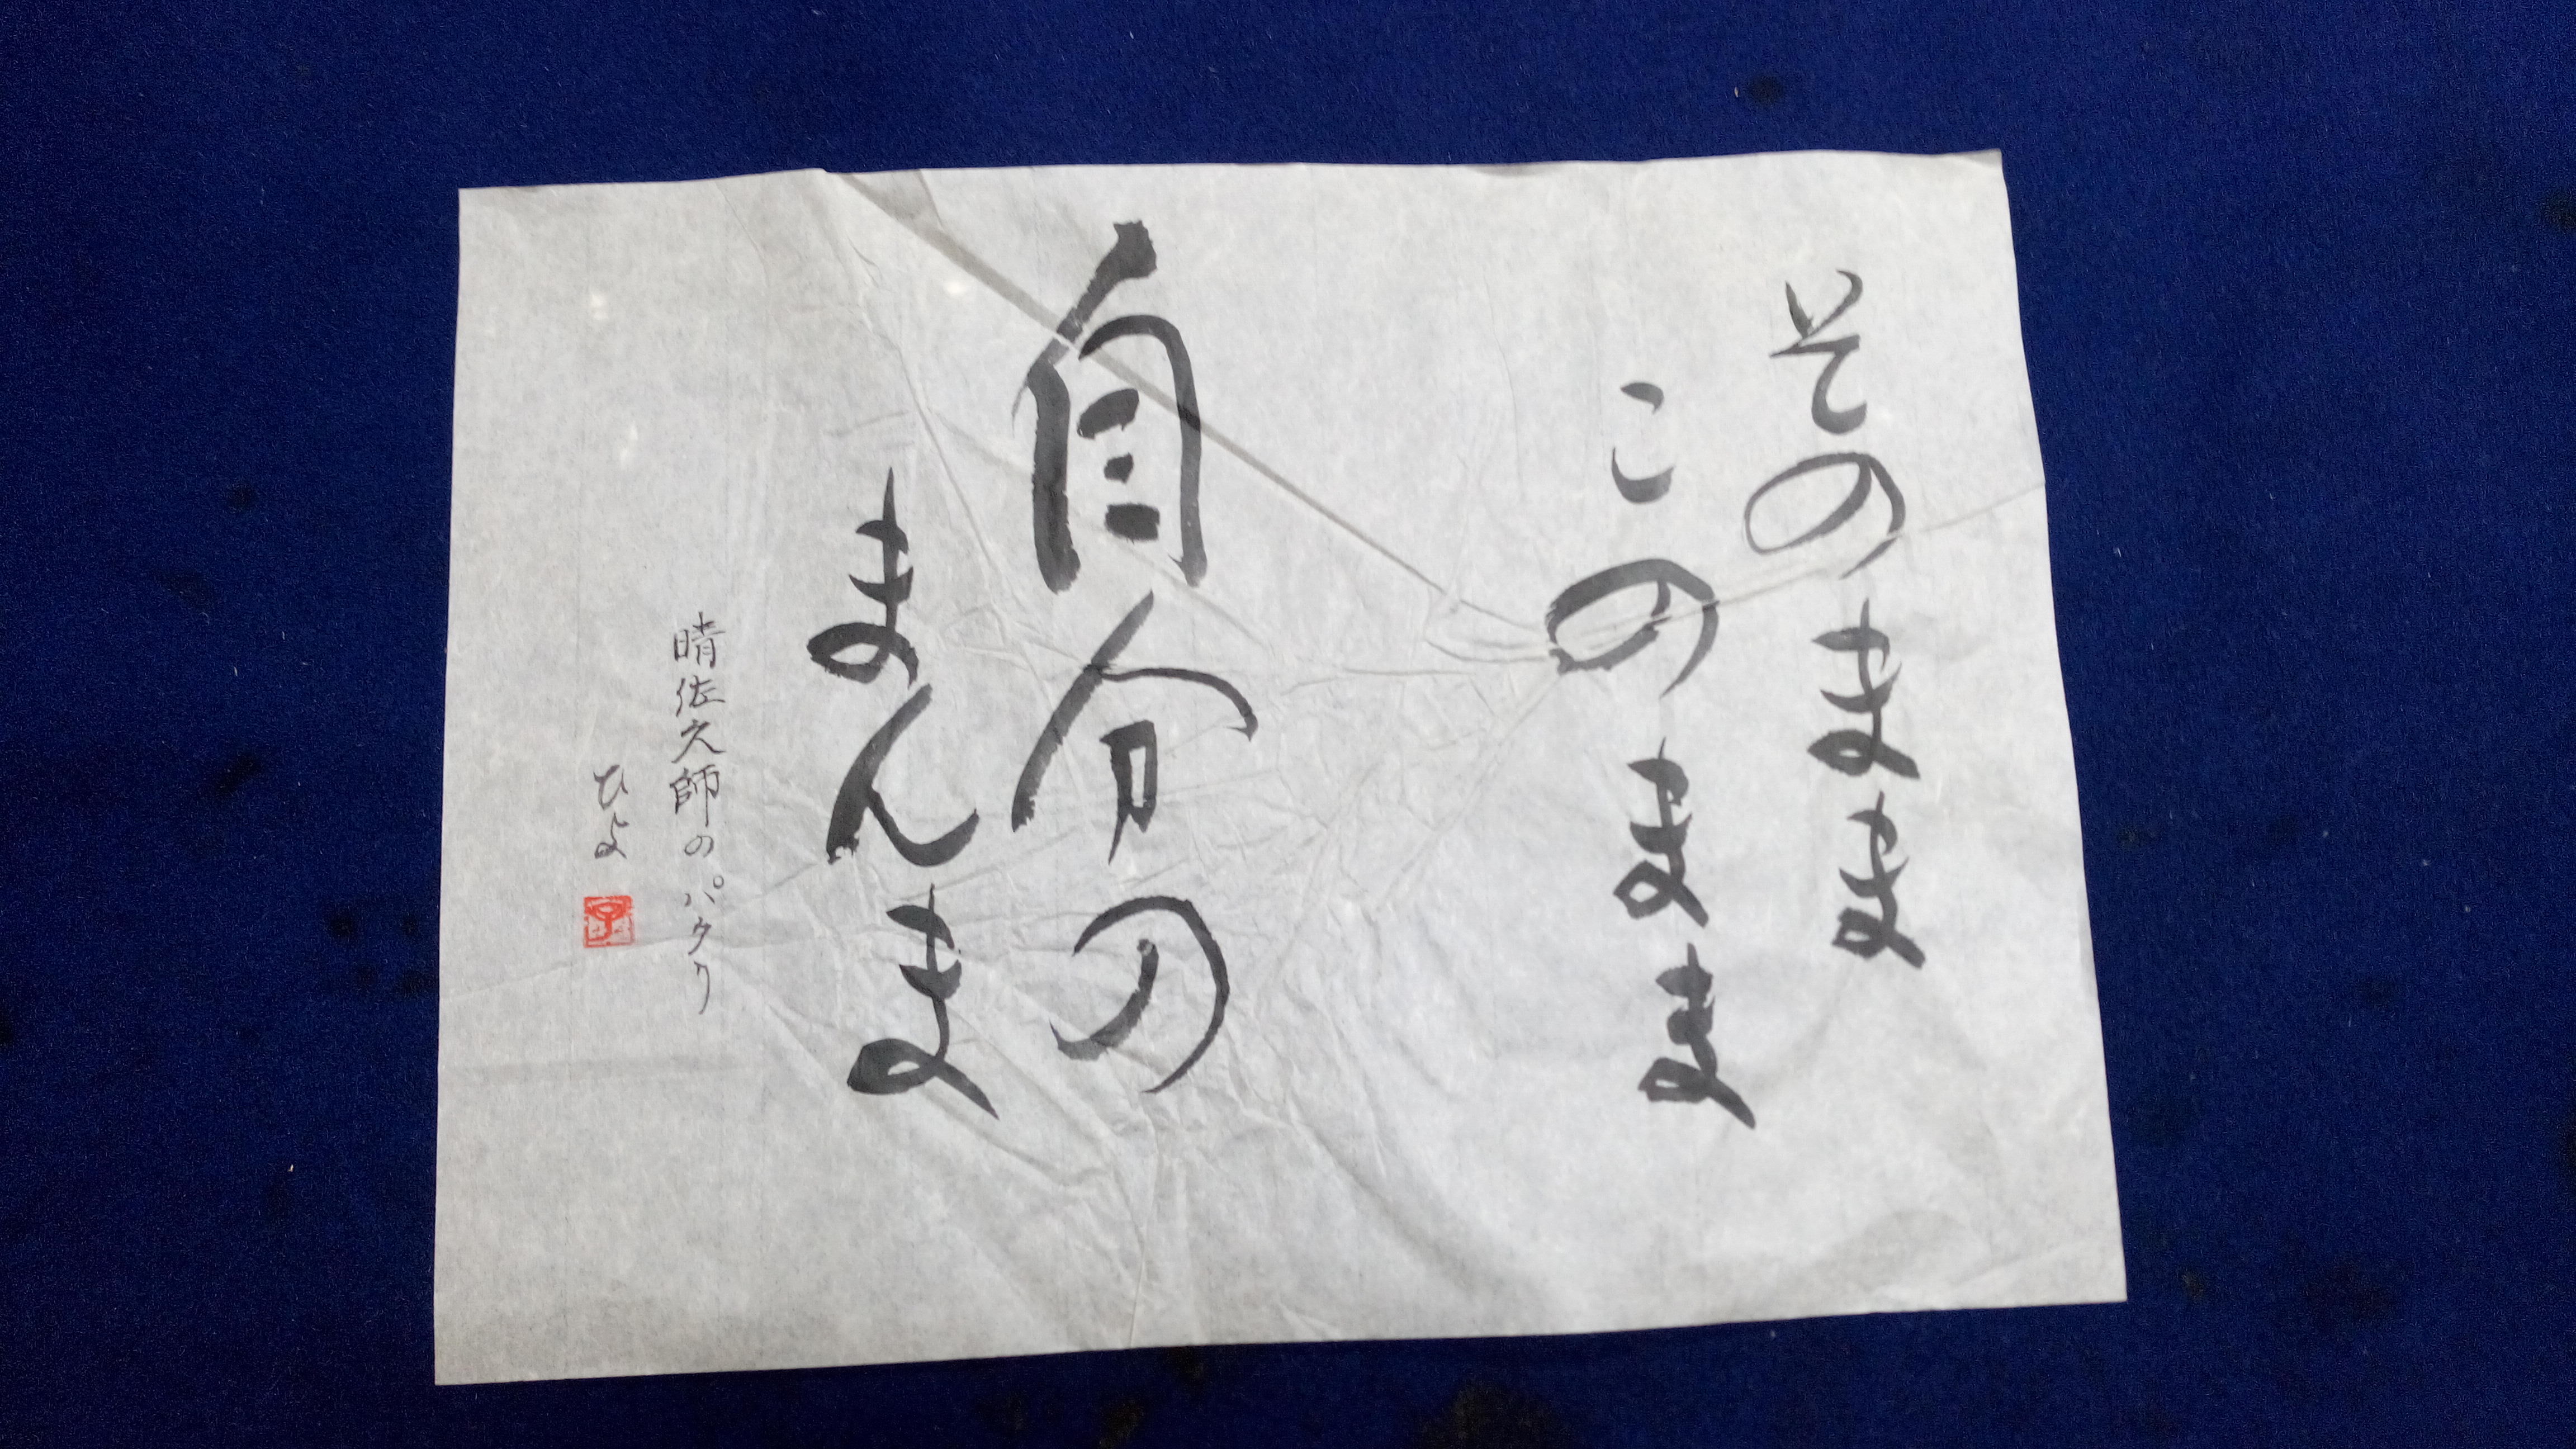 そのまま
このまま
自分の
まんま
晴佐久師のパクリ
ひよ